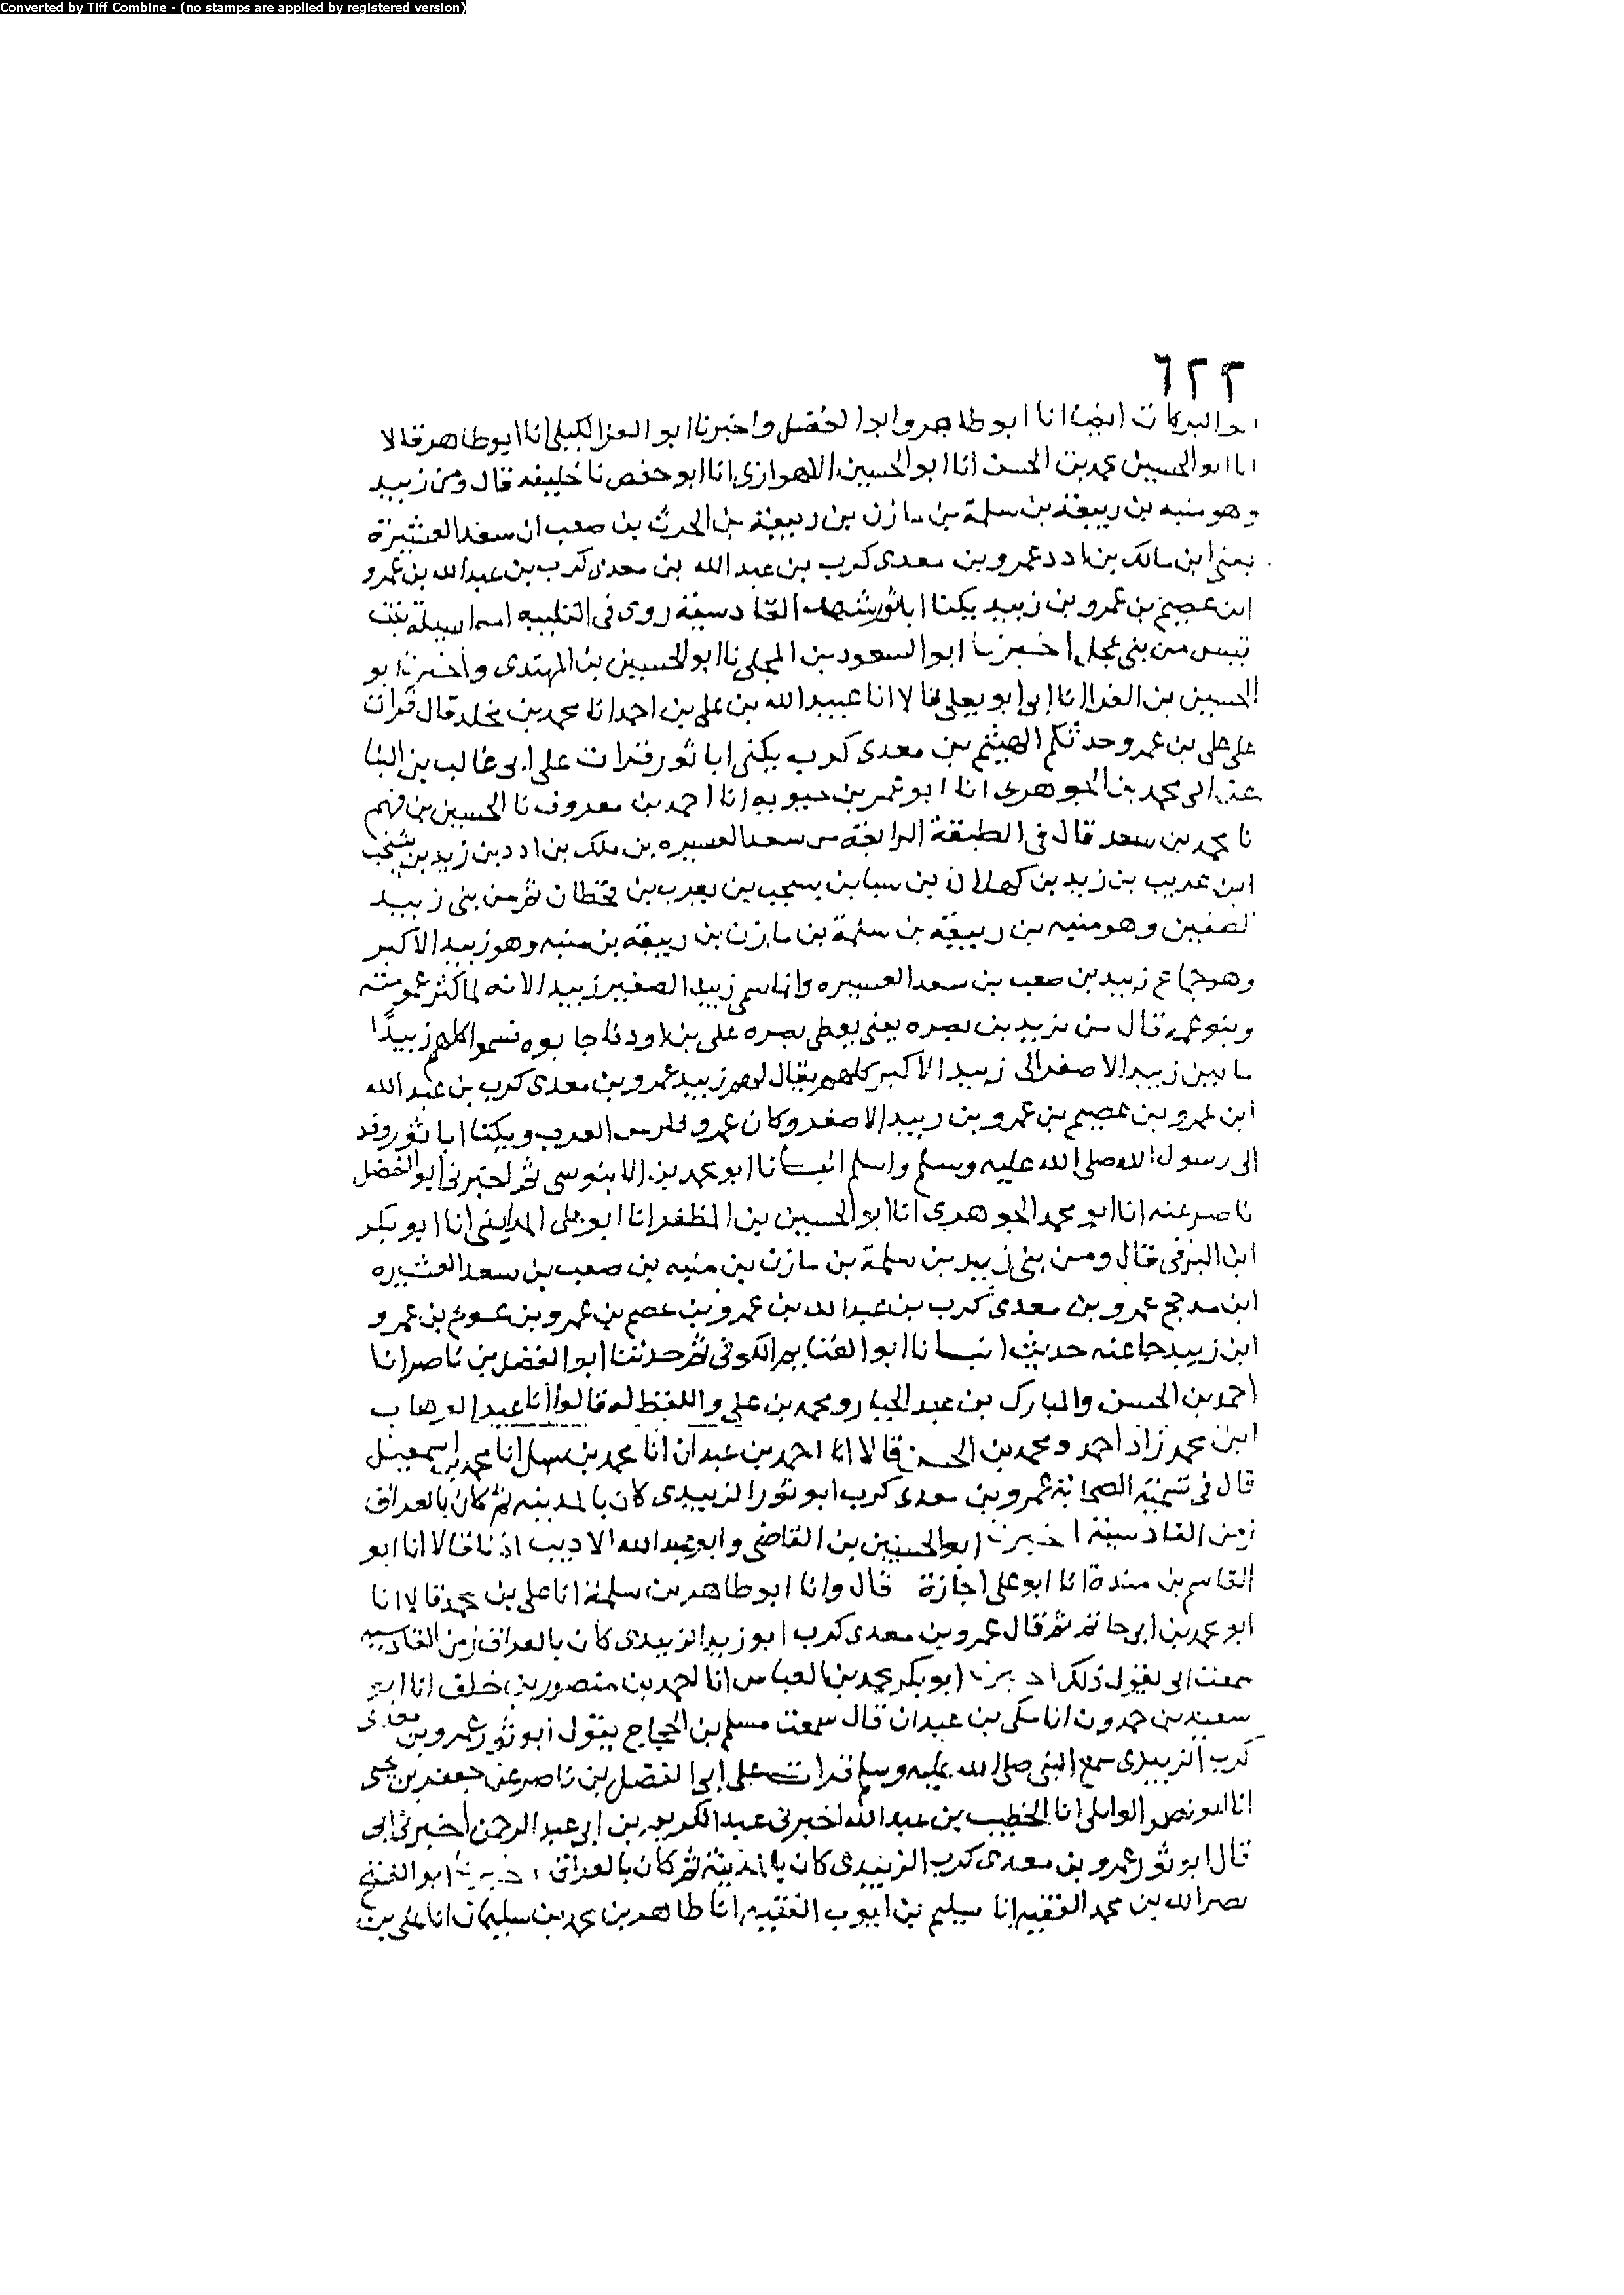 Converted by Tiff Combine - (no stamps are applied by registered version)
٦٢٣
ابو البركات ايضا انا ابو طاهر وابو الفضل واخبرنا ابو العز الكيلي انا ابو طاهر قالا
انا ابو الحسين محمد بن الحسن انا ابو الحسين الاهوازي انا ابو حفص نا خليفه قال ومن زبيد
وهو منبه بن ربيعة بن سلمة بن مازن بن ربيعة بن الحرث بن صعب ان سعد العشيرة
يعني ابن مالك بن ادد عمرو بن معدى كرب بن عبد الله بن معدى كرب بن عبد الله بن عمرو
ابن عصيم بن عمرو بن زبيد يكنا ابا ثور شهد القادسية روى في التلبيه امه اسيلة بنت
قيس من بني عجل اخبرنا ابو السعود بن المجلى نا ابو الحسين بن المهتدى واخبرنا ابو
الحسين بن الفرا انا ابي ابو يعلى قالا انا عبيد الله بن علي بن احمد انا محمد بن مخلد قال قرات
على علي بن عمرو حدثكم الهيثم بن معدى كرب يكنى ابا ثور قرات على ابي غالب بن البنا
عن ابي محمد بن الجوهرى انا ابو عمر بن حيويه انا احمد بن معروف نا الحسين بن فهم
نا محمد بن سعد قال في الطبقة الرابعة من سعد العسيره بن ملك بن ادد بن زيد بن يشجب
ابن عريب بن زيد بن كهلان بن سبا بن يسجب بن يعرب بن قحطان ثم من بني زبيد
الصغير وهو منبه بن ربيعة بن سلمة بن مازن بن ربيعة بن منبه وهو زبيد الاكبر
وهو جماع زبيد بن صعب بن سعد العسيره وانما سمي زبيد الصغير زبيد الانه لما كثر عمومته
وبنو عمه قال من يزبيد بن نصره يعني يعطي نصره على بني اود فاجابوه فسموا كلهم زبيدًا
ما بين زبيد الاصغر الى زبيد الاكبر كلهم يقال لهم زبيد عمرو بن معدى كرب بن عبد الله
ابن عمرو بن عصيم بن عمرو بن زبيد الاصغر وكان عمرو فارس العرب ويكنا ابا ثور وفد
الى رسول الله صلى الله عليه وسلم واسلم انبانا ابو محمد بن الابنوسى ثم اخبرني ابو الفضل
ناصر عنه انا ابو محمد الجوهرى انا ابو الحسين بن المظفر انا ابو على المدايني انا ابو بكر
ابن البرقى قال ومن بني زبيد بن سلمة بن مازن بن منبه بن صعب بن سعد العشيره
ابن مدحج عمرو بن معدى كرب بن عبد الله بن عمرو بن عصم بن عمرو بن عويج بن عمرو
ابن زبيد جا عنه حديث انبانا ابو الغنايم الكوفي ثم حدثنا ابو الفضل بن ناصر انا
احمد بن الحسن والمبارك بن عبد الجبار ومحمد بن علي واللفظ له قالوا انا عبد الوهاب
ابن محمد زاد احمد ومحمد بن الحسن قالا انا احمد بن عبدان انا محمد بن سهل انا محمد بن اسمعيل
قال في تسمية الصحابة عمرو بن معدى كرب ابو ثور الزبيدى كان بالمدينه ثم كان بالعراق
زمن القادسية اخبرنا ابو الحسين بن القاضي وابو عبد الله الاديب اذنا قالا انا ابو
القاسم بن مندة انا ابو علي اجازة قال وانا ابو طاهر بن سلمة انا علي بن محمد قالا انا
ابو محمد بن ابي حاتم ثم قال عمرو بن معدى كرب ابو زيد الزبيدى كان بالعراق زمن القادسيه
سمعت ابي يقول ذلك اخبرنا ابو بكر محمد بن العباس انا احمد بن منصور بن خلف انا ابو
سعيد بن حمدون انا مكي بن عبدان قال سمعت مسلم بن الحجاج يقول ابو ثور عمرو بن معدى
كرب الزبيدى سمع النبي صلى الله عليه وسلم قرات على ابي الفضل بن ناصر عن جعفر بن يحيى
انا ابو نصر الوايلى انا الخطيب بن عبد الله اخبرني عبد الكريم بن ابي عبد الرحمن اخبرني ابي
قال ابو ثور عمرو بن معدى كرب الزبيدى كان بالمدينة ثم كان بالعراق اخبرنا ابو الفتح
نصر الله بن محمد الفقيه انا سليم بن ايوب الفقيه انا طاهر بن محمد بن سليمان انا علي بن